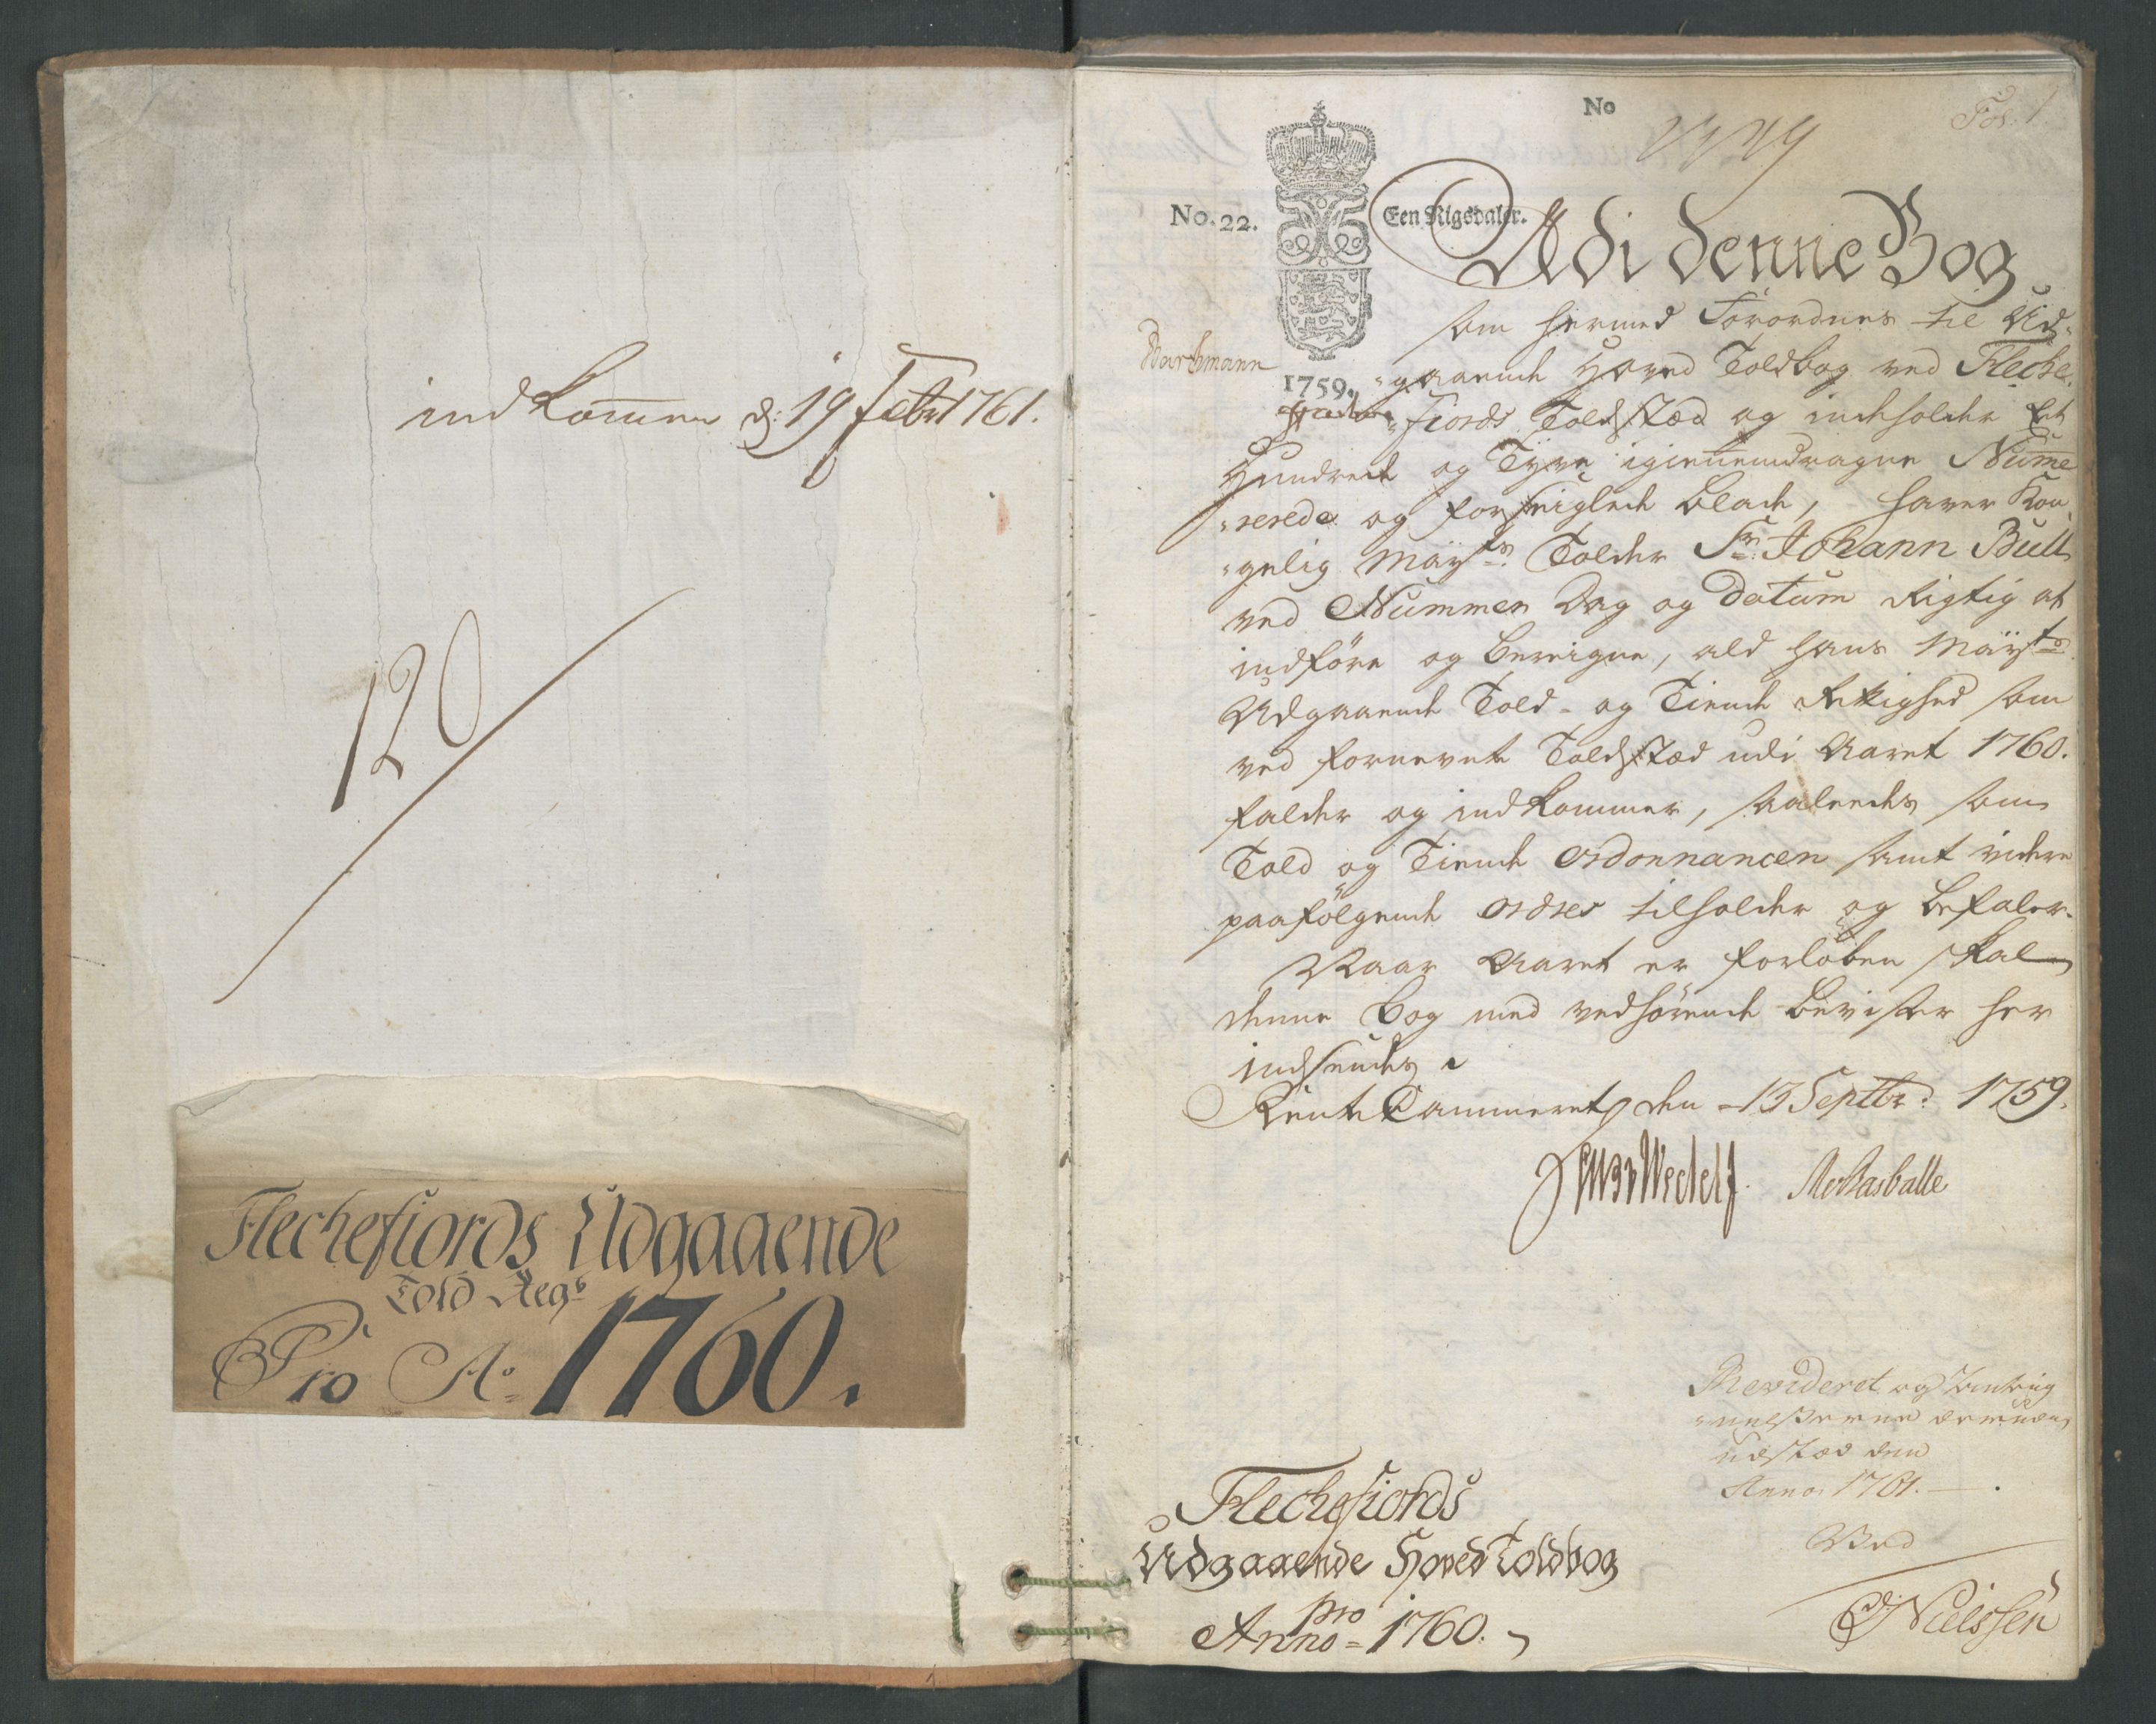 indkommen d: 19 Febr 1761.
120
Flechefiords Udgaaende
Told Regr
Pro Ao 1760.
No
Fol: 1
No. 22.
Een Rigsdaler.
1759.
Udi denne Bog
som hermed Forordnes til Ud-
-gaaende Hoved Toldbog ved Fleche-
-fiords Toldsted og indeholder Et
Hundrede og Tyve igiennemdragne Nume
-rerede og forseiglede Blade, haver Kon-
-gelig Mayts Tolder Sr. Johann Bull
ved Nummer Dag og Datum Rigtig at
indføre og bereigne, ald hans Mayts
Udgaaende Told- og Tiende Rettighed som
ved fornevnte Toldsted udi Aaret 1760.
falder og indkommer, saaledes som
Told og Tiende Ordonnancen samt videre
paafölgende ordres tilholder og befaler.
Naar Aaret er forlöben skal
denne Bog med vedhörende Beviser her
indsendes.
Rente Cammeret den 13 Septbr: 1759.
Revideret og
udstæd den
Anno 1761.
Ved
Nielssen
Flechefiords
Udgaaende Hoved Toldbog
pro
Anno = 1760.